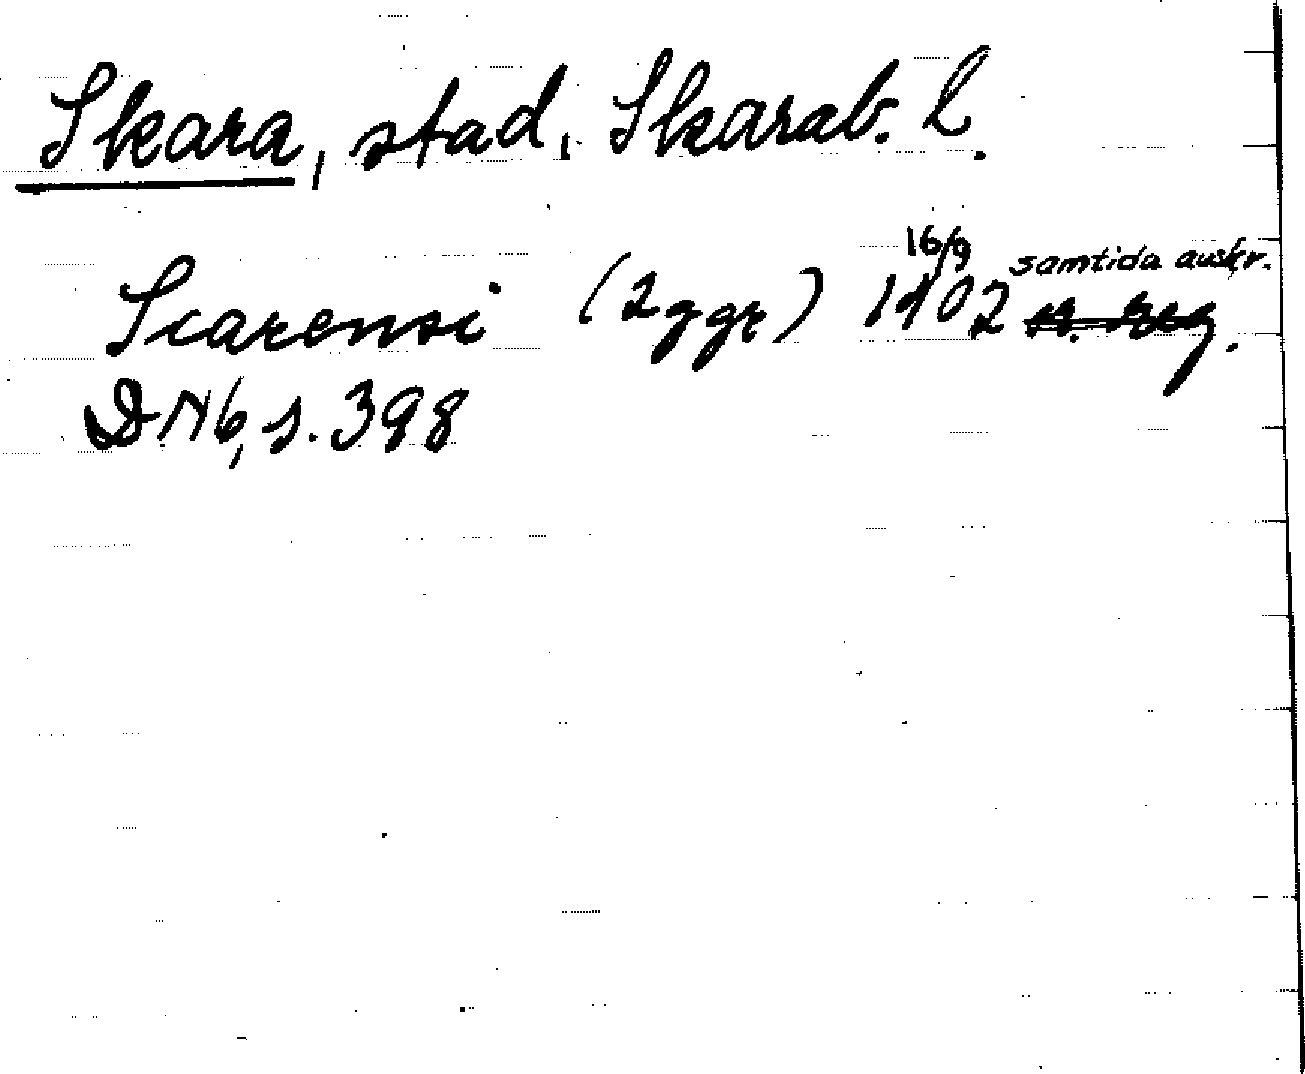 Skara, stad, Skarab. l.
Scarensi (2 ggr) 16/9 1402 samtida avskr.
DN 16, s. 398